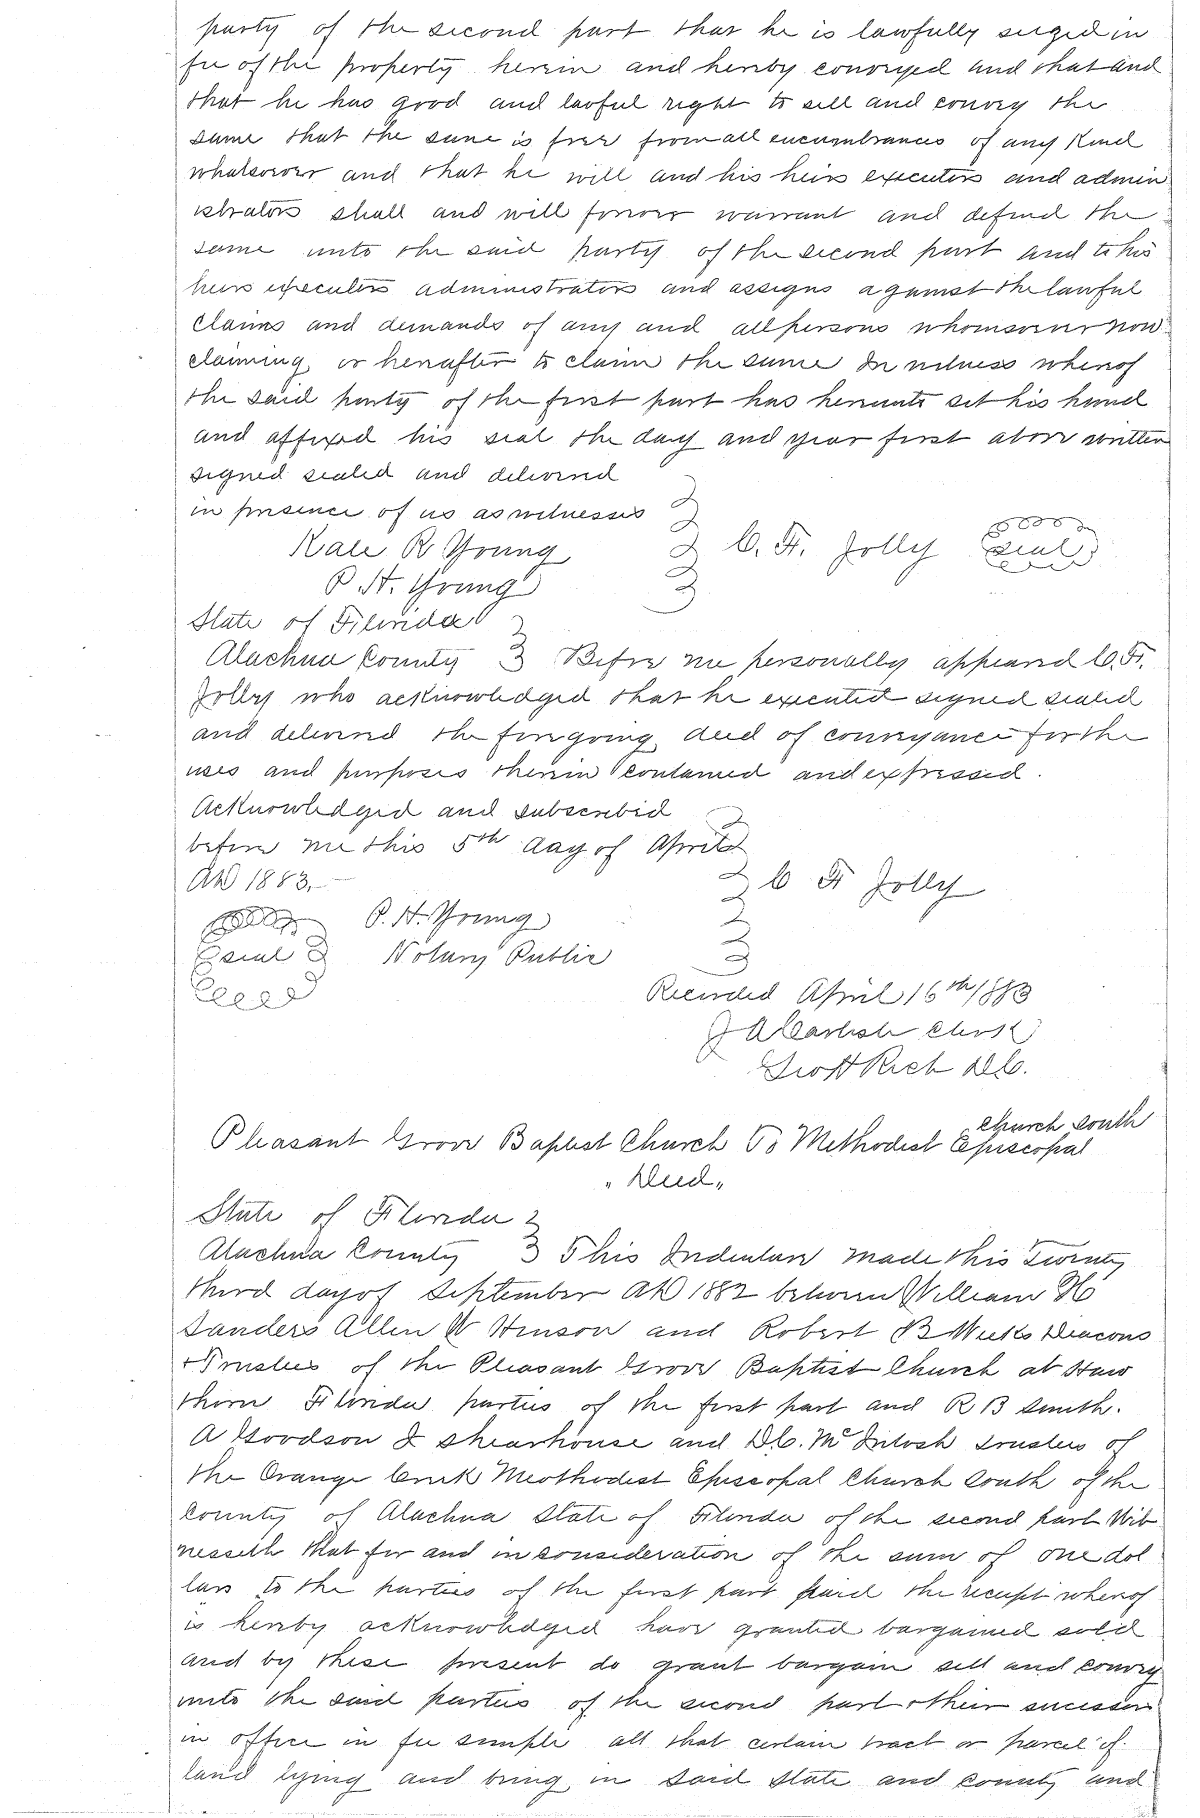 party of the second part that he is lawfully seized in
fee of the property herein and hereby conveyed and that and
that he has good and lawful right to sell and convey the
same that the same is free from all encumbrances of any Kind
whatsoever and that he will and his heirs executors and admin
istrators shall and will forever warrant and defend the
same unto the said party of the second part and to his
heirs executors administrators and assigns against the lawful
claims and demands of any and all persons whomsoever now
claiming or hereafter to claim the same In witness whereof
the said party of the first part has hereunto set his hand
and affixed his seal the day and year first above written
signed sealed and delivered
in presence of us as witnesses
Kate R Young C. F. Jolly seal
P. H. Young
State of Florida
Alachua County Before me personally appeared C. F.
Jolly who acknowledged that he executed signed sealed
and delivered the foregoing deed of conveyance for the
uses and purposes therein contained and expressed.
Acknowledged and subscribed
before me this 5th day of April
AD 1883. C F Jolly
P. H. Young
seal Notary Public
Recorded April 16th/1883
J A Carlisle Clerk
Rich D.C.
Pleasant Grove Baptist Church To Methodist Episcopal church south
"Deed"
State of Florida
Alachua County This Indenture made this Twenty
third day of September AD 1882 between William H
Sanders Allen W Hinson and Robert B Weeks Deacons
+ Trustees of the Pleasant Grove Baptist Church at Haw
thorn Florida parties of the first part and R B Smith.
A Goodson I Shearhouse and D.C. McIntosh trustees of
the Orange Creek Meothodist Episcopal Church South of the
County of Alachua State of Florida of the second part Wit
nesseth that for and in consideration of the sum of one dol
lars to the parties of the first part paid the receipt whereof
is hereby acknowledged have granted bargained sold
and by these present do grant bargain sell and convey
unto the said parties of the second part + their sucessors
in office in fee simple all that certain tract or parcel of
land lying and being in said State and county and